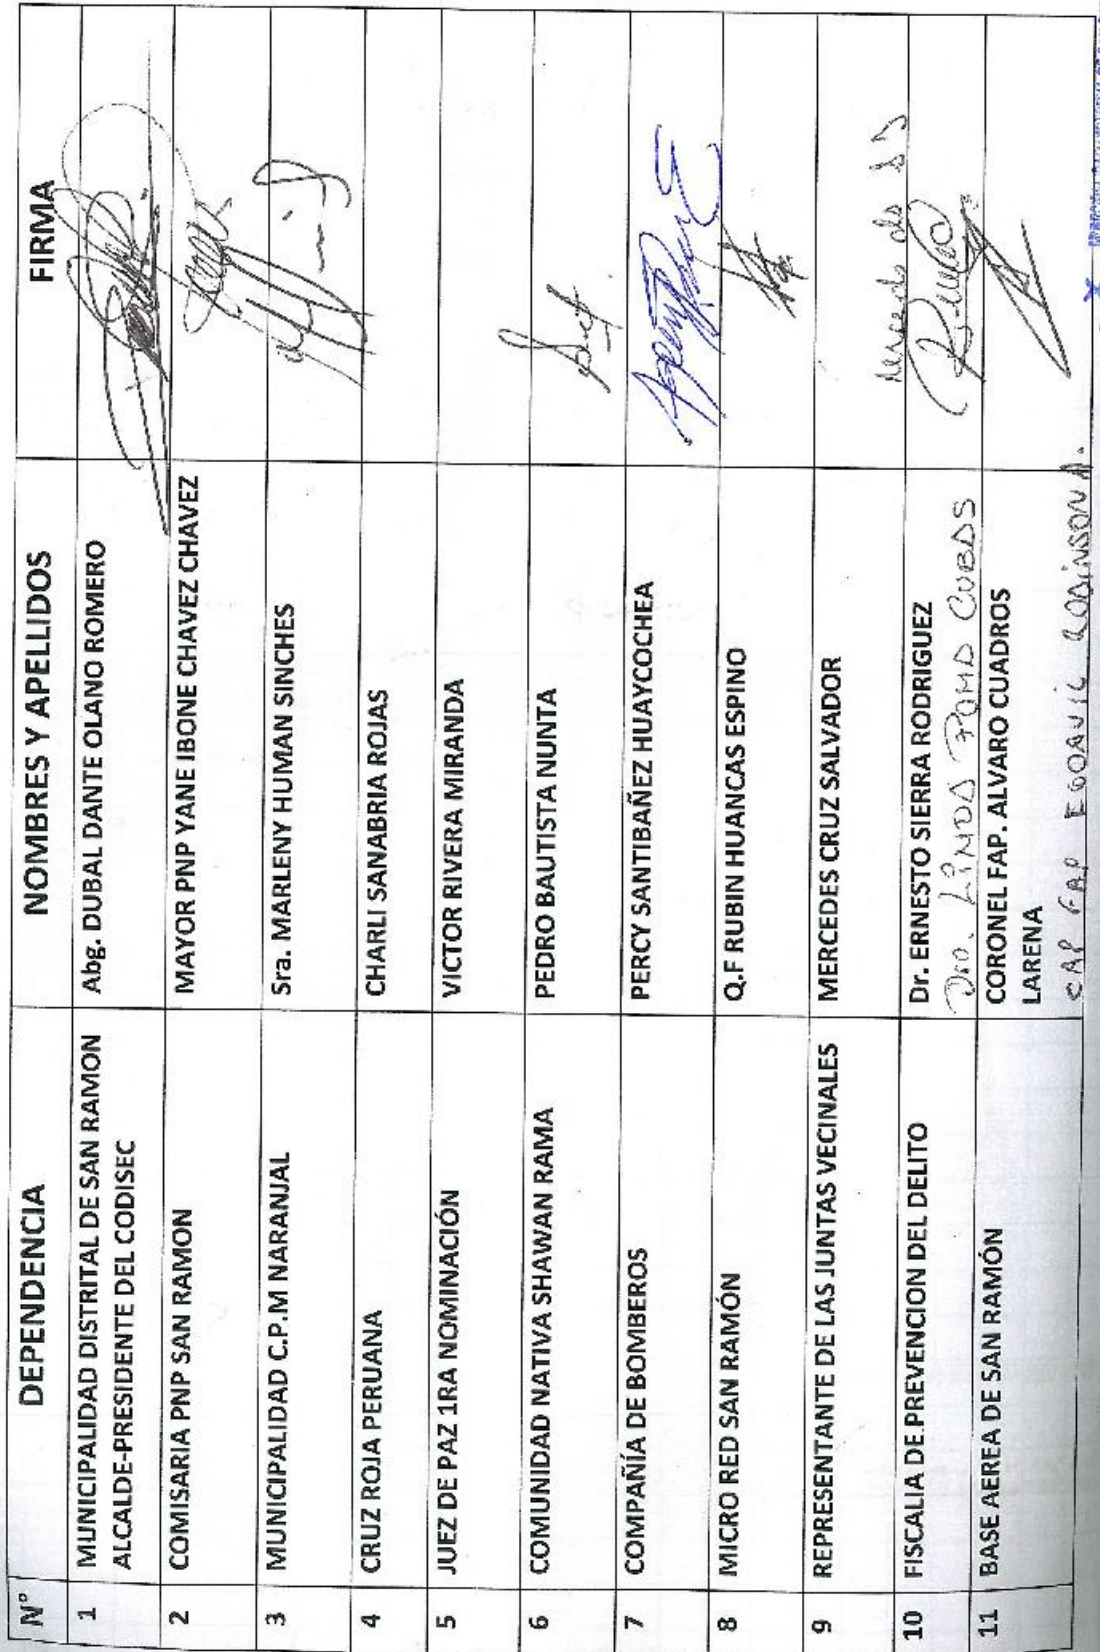 N° DEPENDENCIA NOMBRES Y APELLIDOS FIRMA
1 MUNICIPALIDAD DISTRITAL DE SAN RAMON Abg. DUBAL DANTE OLANO ROMERO
ALCALDE-PRESIDENTE DEL CODISEC
2 COMISARIA PNP SAN RAMON MAYOR PNP YANE IBONE CHAVEZ CHAVEZ
3 MUNICIPALIDAD C.P.M NARANJAL Sra. MARLENY HUMAN SINCHES
4 CRUZ ROJA PERUANA CHARLI SANABRIA ROJAS
5 JUEZ DE PAZ 1RA NOMINACIÓN VICTOR RIVERA MIRANDA
6 COMUNIDAD NATIVA SHAWAN RAMA PEDRO BAUTISTA NUNTA
7 COMPAÑÍA DE BOMBEROS PERCY SANTIBAÑEZ HUAYCOCHEA
8 MICRO RED SAN RAMÓN Q.F RUBIN HUANCAS ESPINO
9 REPRESENTANTE DE LAS JUNTAS VECINALES MERCEDES CRUZ SALVADOR
10 FISCALIA DE PREVENCION DEL DELITO Dr. ERNESTO SIERRA RODRIGUEZ
POMA CUBAS
11 BASE AEREA DE SAN RAMÓN CORONEL FAP. ALVARO CUADROS
LARENA
CAP FAP